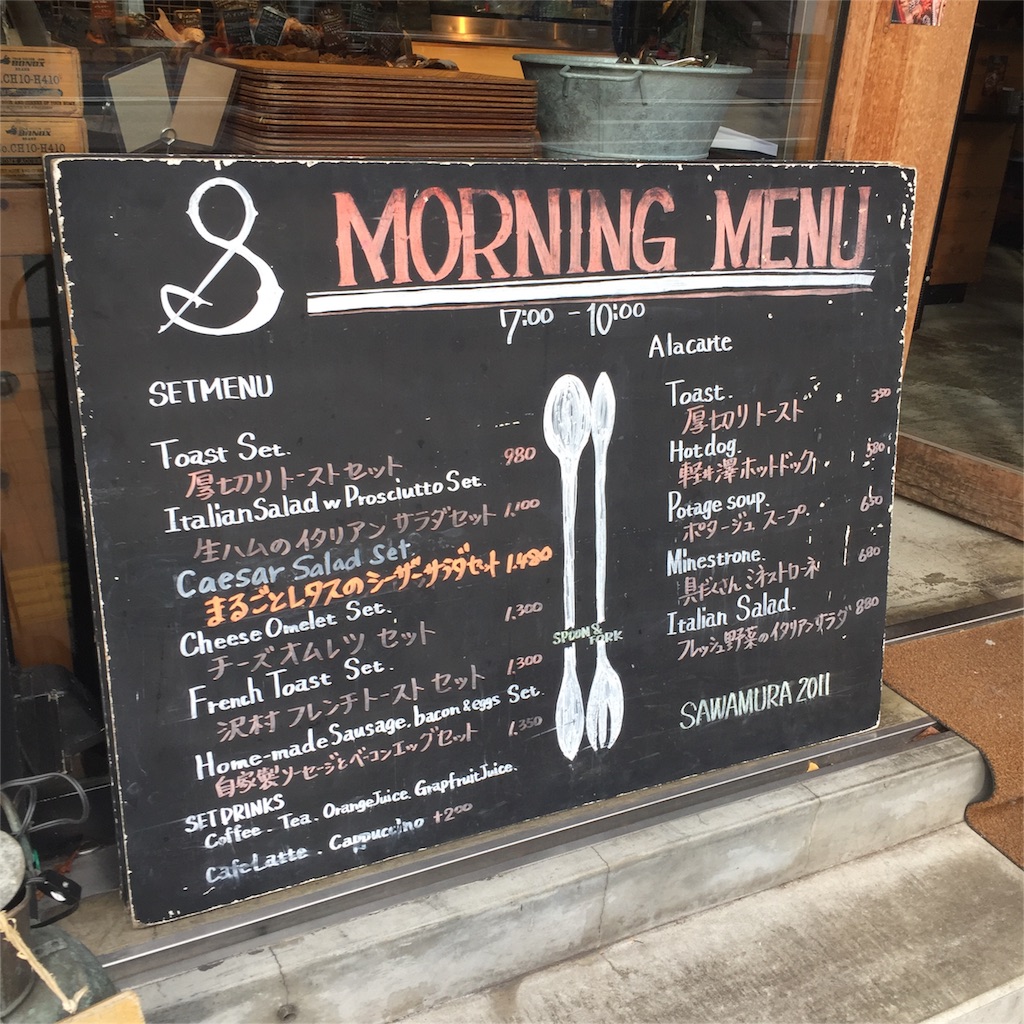 BONOX
CH10-H410
BONOX
CH10-H410
S MORNING MENU
7:00 - 10:00
SETMENU
Toast Set.
厚切りトーストセット 980
Italian Salad w Prosciutto Set.
生ハムのイタリアン サラダセット 1,100
Caesar Salad Set.
まるごとレタスのシーザーサラダセット 1,480
Cheese Omelet Set.
チーズオムレツ セット 1,300
French Toast Set.
沢村 フレンチトーストセット 1,300
Home-made Sausage, bacon & eggs Set.
自家製ソーセージとベーコンエッグセット 1,350
SET DRINKS
Coffee. Tea. Orange Juice. Grapfruit Juice.
Cafe Latte. Cappuccino +200
SPOON &
FORK
A la carte
Toast. 350
厚切りトースト
Hot dog. 580
軽井澤ホットドック
Potage soup. 650
ポタージュ スープ
Minestrone. 680
具だくさん ミネストローネ
Italian Salad. 880
フレッシュ野菜のイタリアンサラダ
SAWAMURA 2011